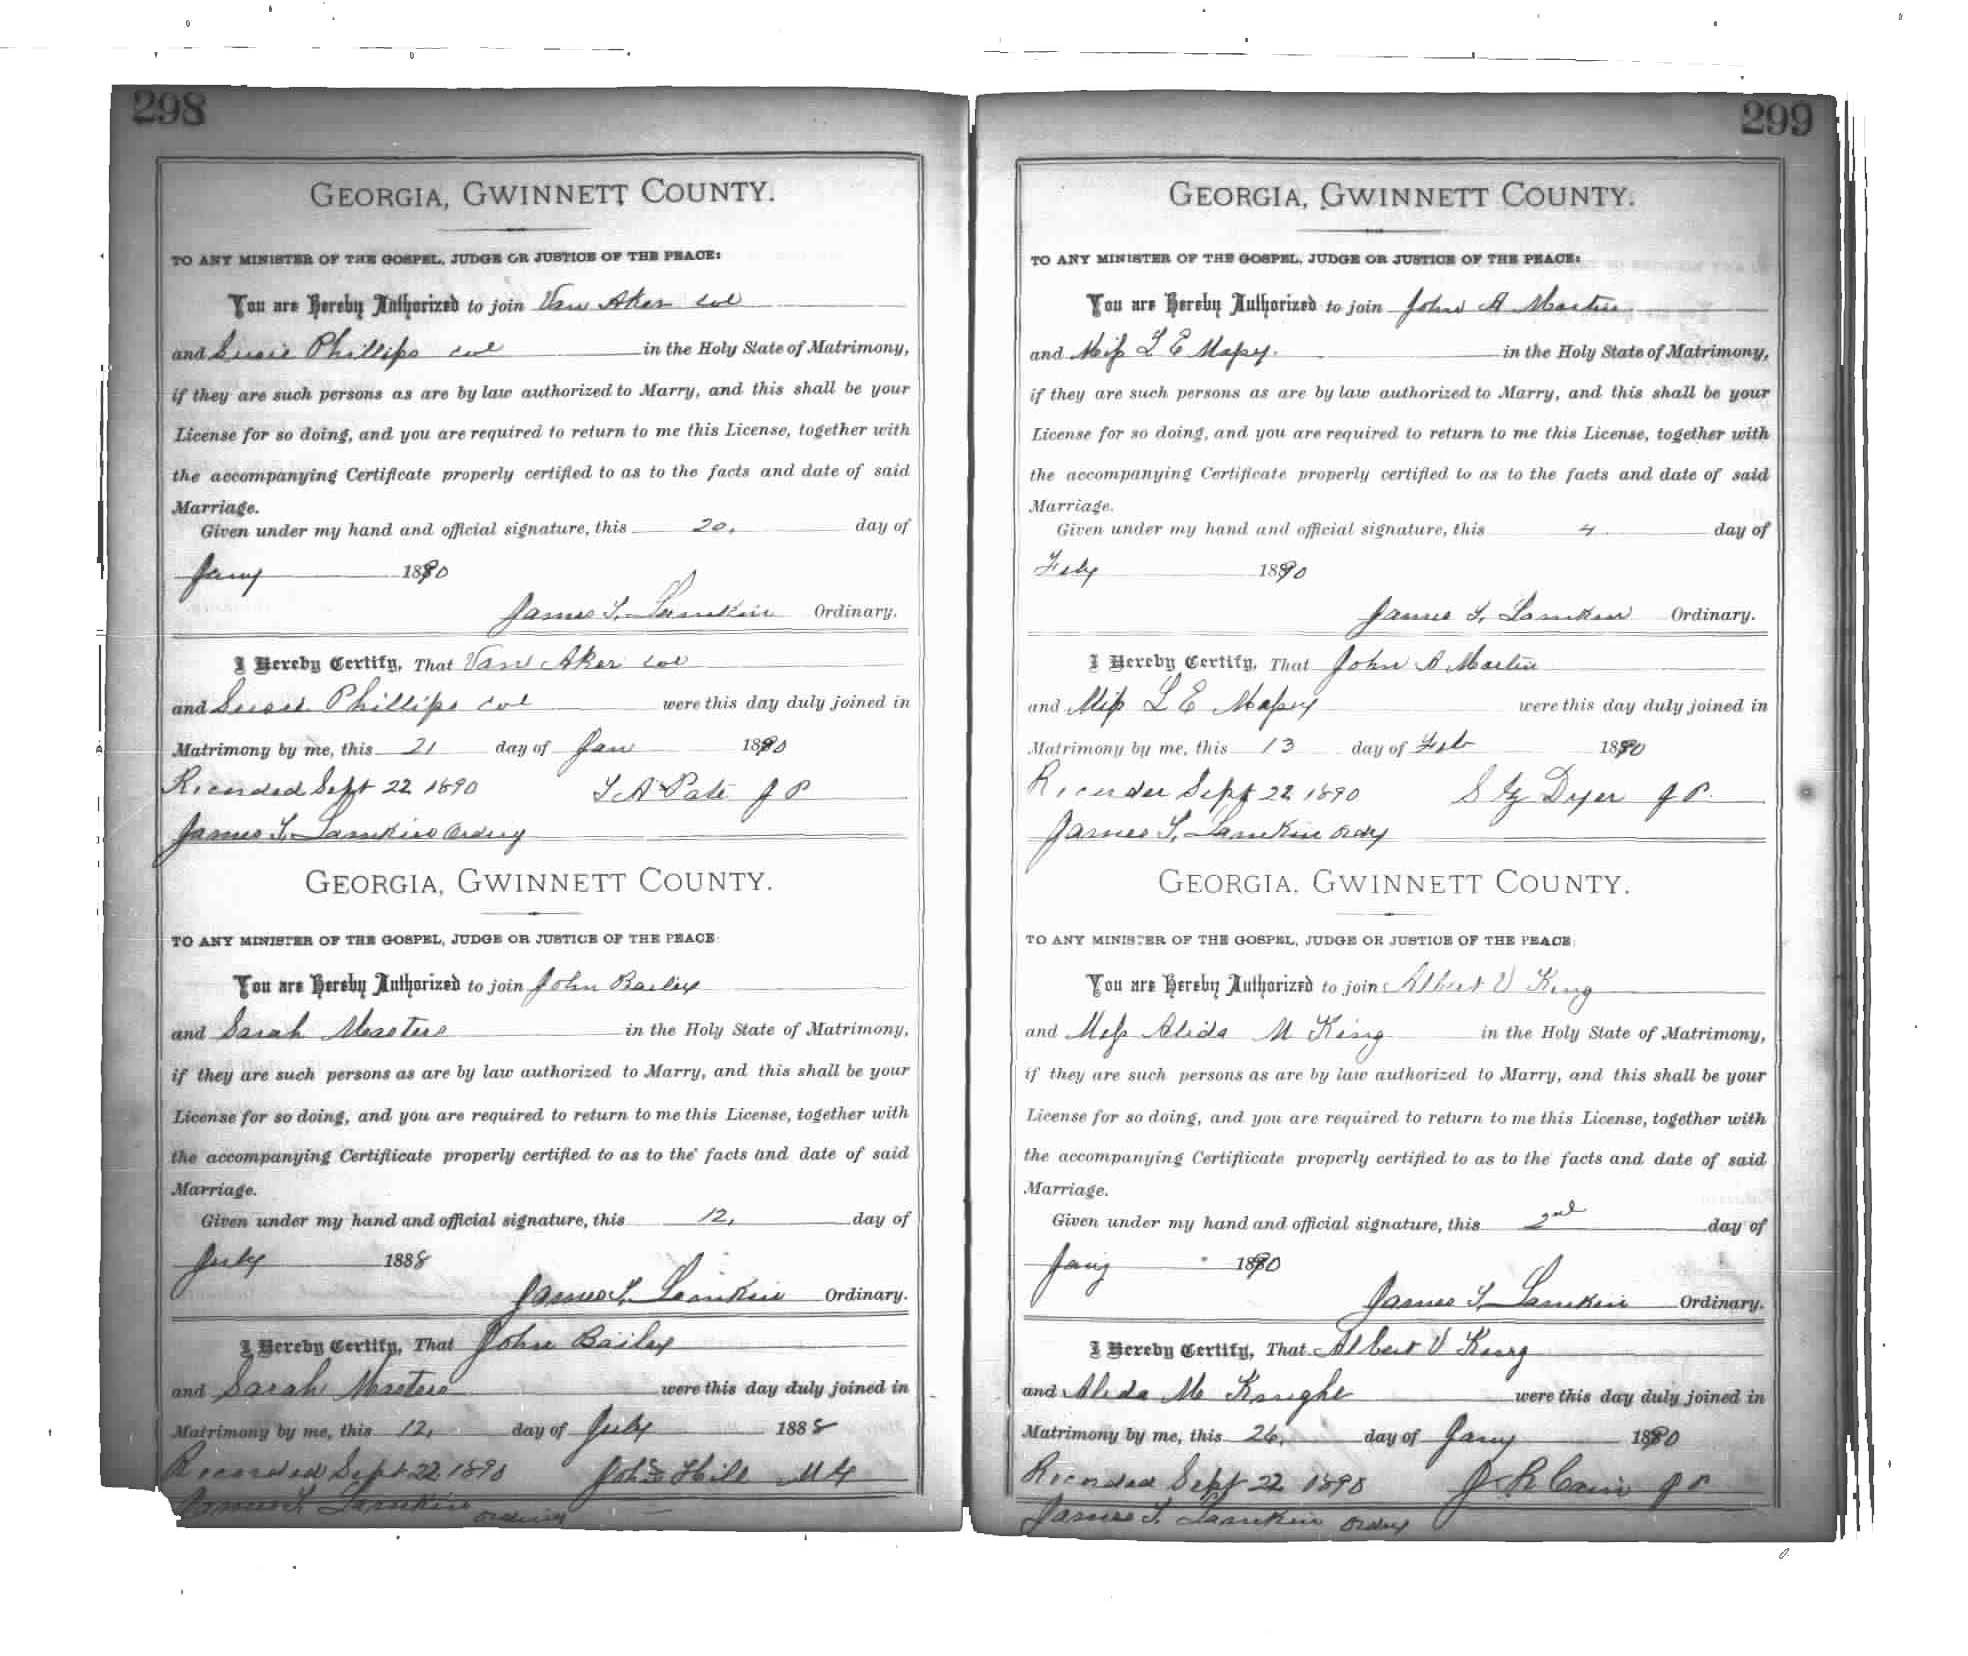 298
GEORGIA, GWINNETT COUNTY.
TO ANY MINISTER OF THE GOSPEL, JUDGE OR JUSTICE OF THE PEACE:
You are Hereby Authorized to join Van Aker col
and Susie Phillips col in the Holy State of Matrimony,
if they are such persons as are by law authorized to Marry, and this shall be your
License for so doing, and you are required to return to me this License, together with
the accompanying Certificate properly certified to as to the facts and date of said
Marriage.
Given under my hand and official signature, this 20, day of
Jany 1890
James T. Lamkin Ordinary.
I Hereby Certify, That Van Aker col
and Susie Phillips col were this day duly joined in
Matrimony by me, this 21 day of Jan 1890
Recorded Sept 22 1890 T A Pate J P
James T. Lamkin Ordny
GEORGIA, GWINNETT COUNTY.
TO ANY MINISTER OF THE GOSPEL, JUDGE OR JUSTICE OF THE PEACE:
You are Hereby Authorized to join John Bailey
and Sarah Masters in the Holy State of Matrimony,
if they are such persons as are by law authorized to Marry, and this shall be your
License for so doing, and you are required to return to me this License, together with
the accompanying Certifiicate properly certified to as to the facts and date of said
Marriage.
Given under my hand and official signature, this 12, day of
July 1888
James T. Lamkin Ordinary.
I Hereby Certify, That John Bailey
and Sarah Masters were this day duly joined in
Matrimony by me, this 12, day of July 1888
Recorded Sept 22 1890 John Hill M G
James T. Lamkin Ordinary
299
GEORGIA, GWINNETT COUNTY.
TO ANY MINISTER OF THE GOSPEL, JUDGE OR JUSTICE OF THE PEACE:
You are Hereby Authorized to join John A Martin
and Miss L E Massey in the Holy State of Matrimony,
if they are such persons as are by law authorized to Marry, and this shall be your
License for so doing, and you are required to return to me this License, together with
the accompanying Certificate properly certified to as to the facts and date of said
Marriage.
Given under my hand and official signature, this 4 day of
Feby 1890
James T. Lamkin Ordinary.
I Hereby Certify, That John A Martin
and Miss L E Massey were this day duly joined in
Matrimony by me, this 13 day of Feb 1890
Recorded Sept 22 1890 S G Dyer J P.
James T. Lamkin Ordy
GEORGIA, GWINNETT COUNTY.
TO ANY MINISTER OF THE GOSPEL, JUDGE OR JUSTICE OF THE PEACE:
You are Hereby Authorized to join Albert V King
and Miss Alida M King in the Holy State of Matrimony,
if they are such persons as are by law authorized to Marry, and this shall be your
License for so doing, and you are required to return to me this License, together with
the accompanying Certifiicate properly certified to as to the facts and date of said
Marriage.
Given under my hand and official signature, this 2nd day of
Jany 1890
James T. Lamkin Ordinary.
I Hereby Certify, That Albert V King
and Alida M Knight were this day duly joined in
Matrimony by me, this 26, day of Jany 1890
Recorded Sept 22 1890 J R Cain J P
James T. Lamkin Ordny